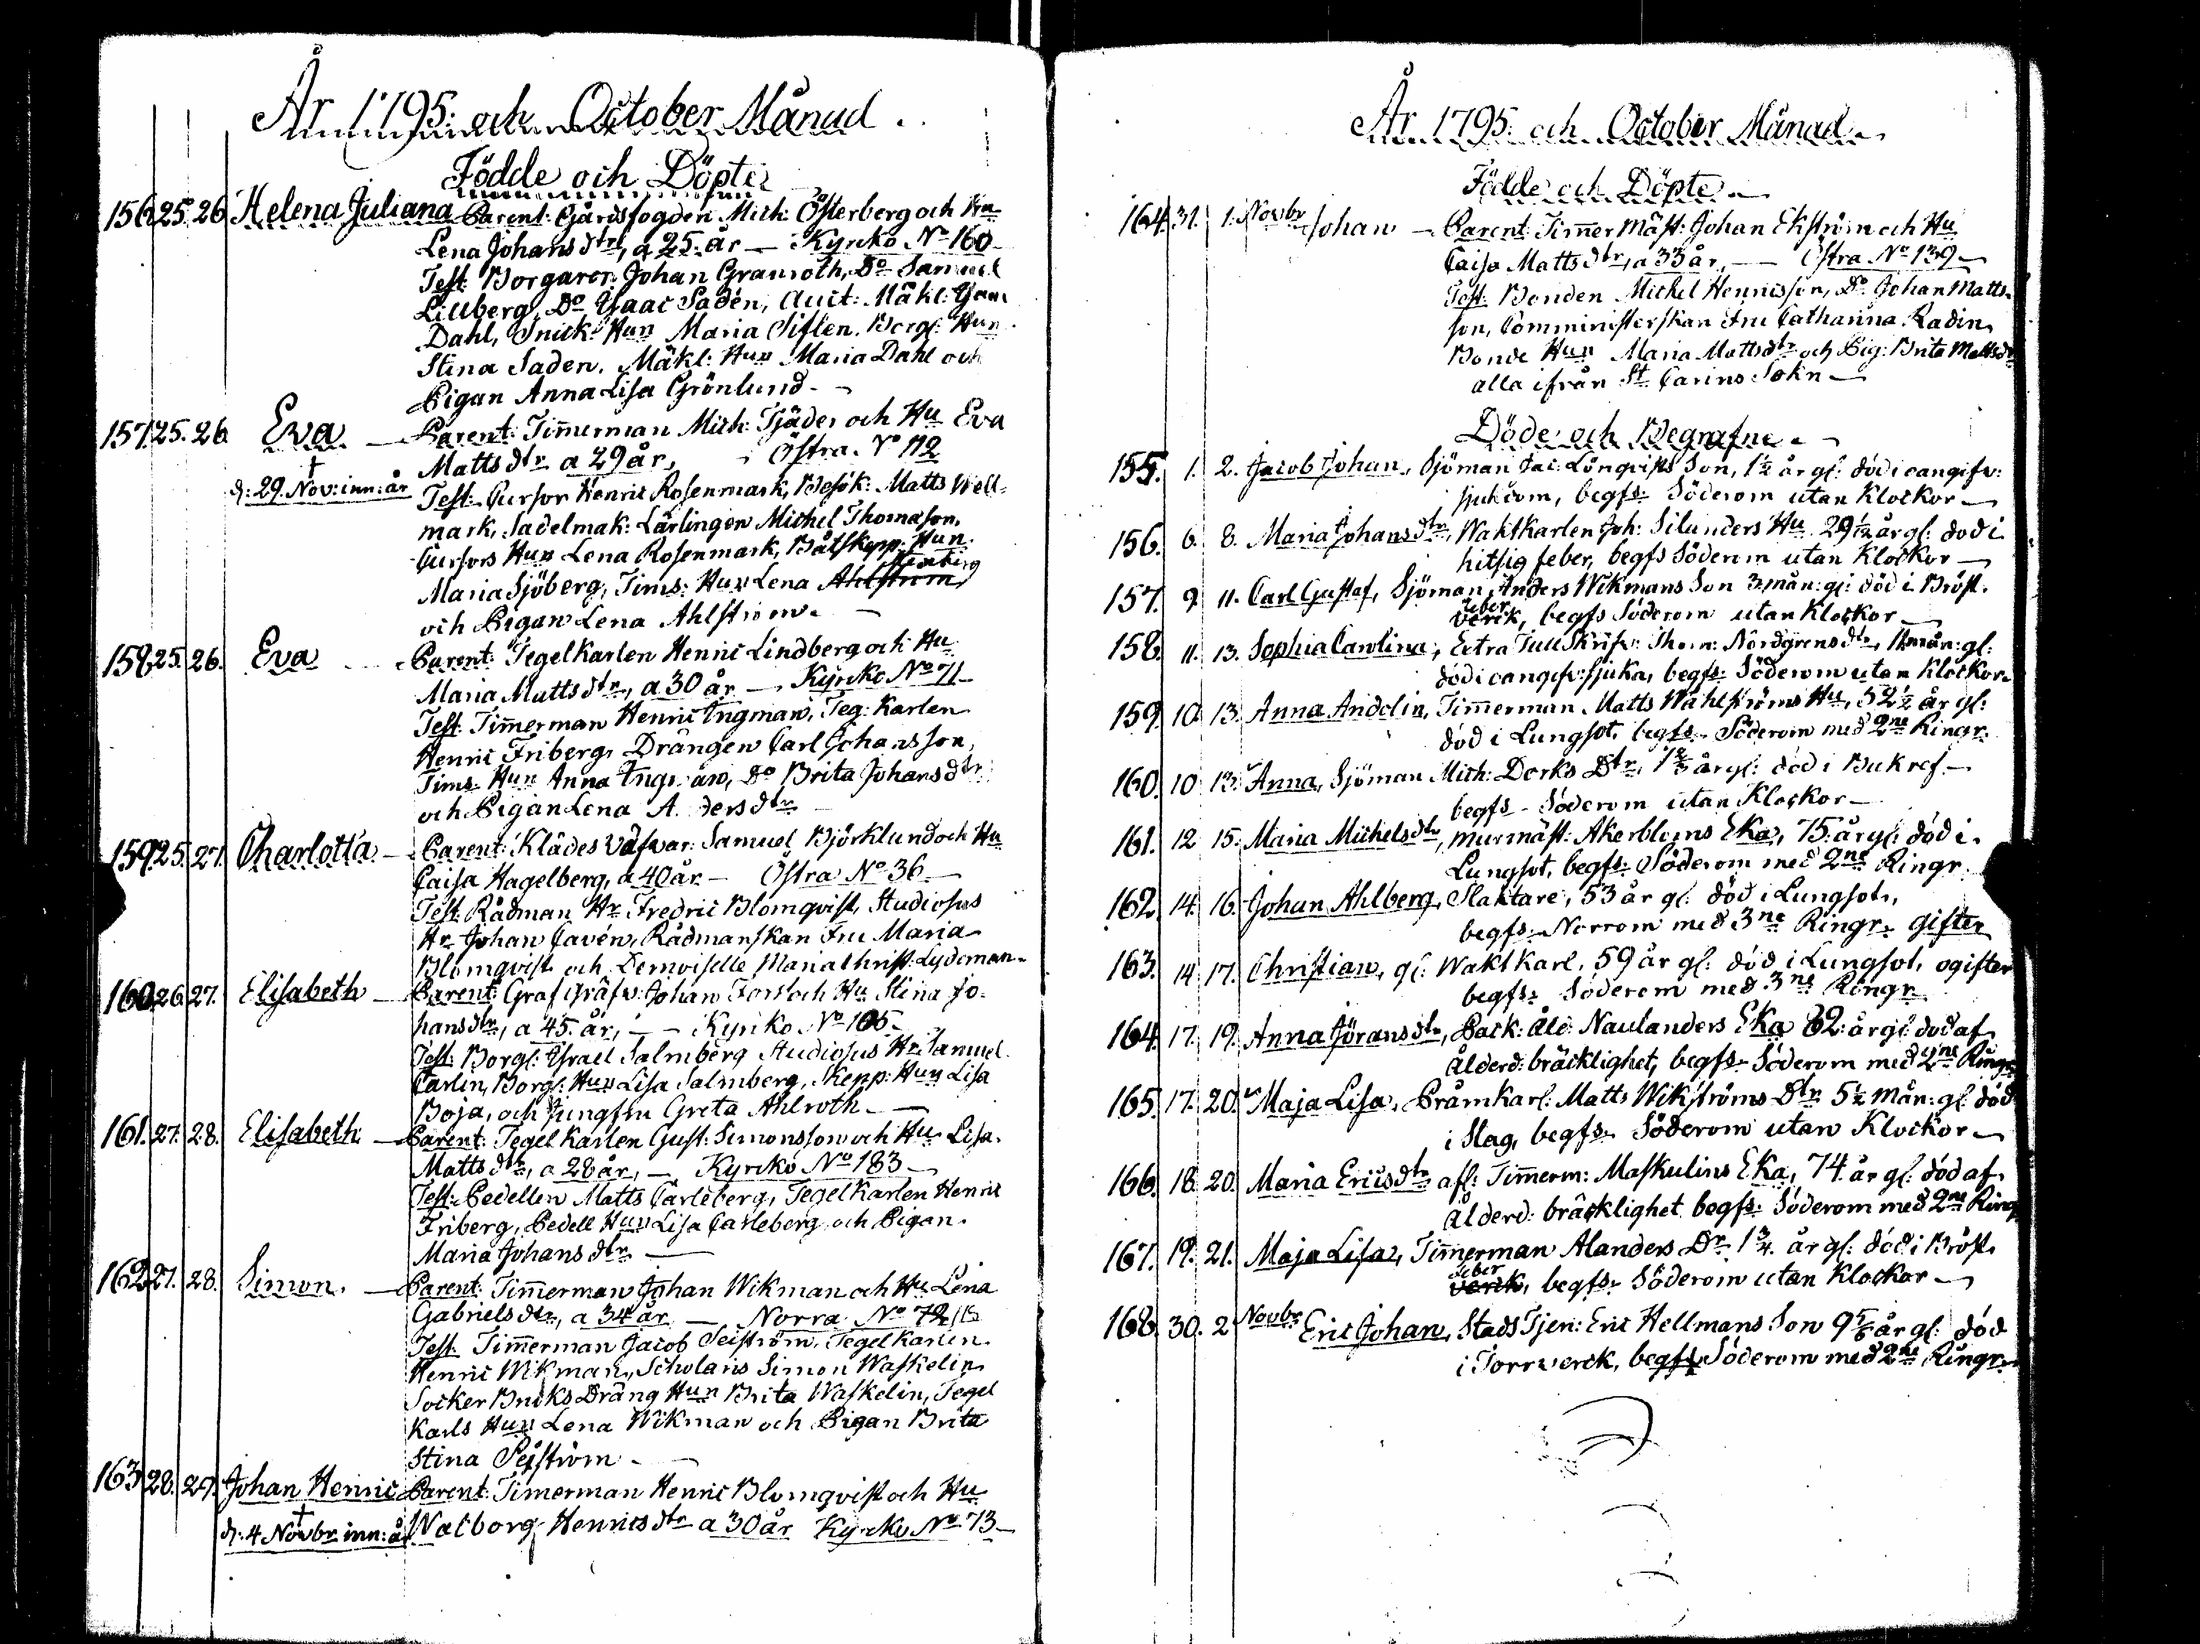 År 1795: och October Månad.
Födde och Döpte
156. 25. 26. Helena Juliana Parent: Gårdsfogden Mich: Österberg och Hu
Lena Johansdtr, a 25. år — Kyrko No 160
Test: Borgaren Johan Granroth, Do Samuel
Lillberg, Do Ysaac Sadén, Auct: Mäkl:
Dahl, Snick: Hun Maria Siflen. Borg: Hun
Stina Saden. Mäkl: Hun Maria Dahl och
Pigan Anna Lisa Grönlund —
157. 25. 26. Eva — Parent: Timmerman Mich: Tjäder och Hu Eva
Mattsdtr a 29 år, Östra. No 112
† d: 29. Nov: inn: år
Test: Cursor Henric Rosenmark, Besök: Matts Well-
mark, Sadelmak: Lärlingen Michel Thomason,
Cursors Hun Lena Rosenmark, Båtskepp: Hun
Maria Sjöberg, Tims: Hun Lena Ahlstrom,
och Pigan Lena Ahlström. —
158. 25. 26. Eva — Parent: Tegelkarlen Henric Lindberg och Hu
Maria Mattsdtr, a 30 år — Kyrko No 71
Test: Timmerman Henric Ingman, Teg: Karlen
Henric Friberg, Drängen Carl Johansson,
Tims: Hun Anna Ingman, Do Brita Johansdtr
och Pigan Lena A..dersdtr
159. 25. 27. Charlotta — Parent: Klädesväfvar: Samuel Björklund och Hu
Caisa Hagelberg, a 40 år — Östra No 36 —
Test: Rådman Hr Fredric Blomqvist, Studiosus
Hr Johan Cavén, Rådmanskan Fru Maria
Blomqvist och Demoiselle Maria Christ: Lydeman
160. 26. 27. Elisabeth — Parent: Graf Gräfv: Johan Forss och Hu Stina Jo-
hansdtr, a 45. år, — Kyrko No 105 —
Test: Borg: Israel Salmberg Studiosus Hr Samuel
Carlin, Borg: Hun Lisa Salmberg, Skepp: Hun Lisa
Boja, och Jungfru Greta Ahlroth —
161. 27. 28. Elisabeth — Parent: Tegel Karlen Gust: Simonsson och Hu Lisa
Mattsdtr, a 28 år, — Kyrko No 183 —
Test: Pedellen Matts Carleberg, Tegel Karlen Henric
Friberg, Pedell Hun Lisa Carleberg och Pigan
Maria Johansdtr —
162. 27. 28. Simon. — Parent: Timmerman Johan Wikman och Hu Lena
Gabrielsdtr, a 34 år — Norra No 72
Test: Timmerman Jacob Seiström, Tegelkarlen
Henric Wikman, Scholaris Simon Waskelin
Socker Bruks Dräng Hun Brita Waskelin, Tegel
Karls Hun Lena Wikman och Pigan Brita
Stina Sejström —
163. 28. 29. Johan Henric Parent: Timmerman Henric Blomqvist och Hu
† d: 4 Novbr inn: år Walborg Henricsdtr a 30 år Kyrko No 73 —
År 1795. och October Månad
Födde och Döpte —
164. 31. 1. Novbr Johan — Parent: Timmer Mäst: Johan Ekström och Hu
Caisa Mattsdtr, a 33 år, — Östra No 139 —
Test: Bonden Michel Henricsson, Do Johan Matts-
son, Comministerskan Fru Catharina Radin,
Bonde Hun Maria Mattsdtr och Pig: Brita Mattsdtr
alla ifrån St Carins Sokn —
Döde och Begrafne —
155. 1. 2. Jacob Johan, Sjöman Jac: Lönqvists Son, 1½ år gl: död i oangifv:
sjukdom, begfs Söderom utan Klockor —
156. 6. 8. Maria Johansdtr, Waktkarlen Joh: Silunders Hu 29½ år gl: död i
hitsig feber, begfs Söderom utan Klockor —
157. 9. 11. Carl Gustaf, Sjöman Anders Wikmans Son 3 mån: gl: död i Bröst-
feber
verck, begfs Söderom utan Klockor —
158. 11. 13. Sophia Carolina, Extra Tull Skrifv: Thom: Nordgrens dtr, 11 mån: gl:
död i oangifv: sjuka, begfs: Söderom utan Klockor
159. 10. 13. Anna Andolin, Timmerman Matts Wahlströms Hu, 52½ år gl:
död i Lungsot, begfs Söderom med 2ne Ringr.
160. 10. 13. Anna, Sjöman Mich: Dorks Dtr, år gl: död i Bukref —
begfs Söderom utan Klockor —
161. 12. 15. Maria Michelsdtr, murmäst: Åkerbloms Eka, 75. år gl: död i
Lungsot, begfs: Söderom med 2ne Ringr
162. 14. 16. Johan Ahlberg, Slaktare, 53 år gl: död i Lungsot,
begfs: Norrom med 3ne Ringr, gifter
163. 14. 17. Christian, gl: Waktkarl, 59 år gl: död i Lungsot, ogifter
begfs: Söderom med 3ne Ringr.
164. 17. 19. Anna Jöransdtr, Pack: Åld: Naulanders Eka 82: år gl: död af
ålderd: bräcklighet, begfs Söderom med 2ne Ringr
165. 17. 20. Maja Lisa, Pråmkarl: Matts Wikströms Dtr 5½ mån: gl: död
i Slag, begfs Söderom utan Klockor —
166. 18. 20. Maria Ericsdtr afl: Timmerm: Maskulins Eka, 74 år gl: död af
Ålderd: bräcklighet begfs: Söderom med 2ne Ringr
167. 19. 21. Maja Lisa, Timmerman Alanders Dr. 1¾ år gl: död i Bröst-
feber
verck, begfs Söderom utan Klockor —
168. 30. 2 Novbr Eric Johan, Stads Tjen: Eric Hellmans Son 9 år gl: död
i Torrverck, begfs Söderom med 2ne Ringr.